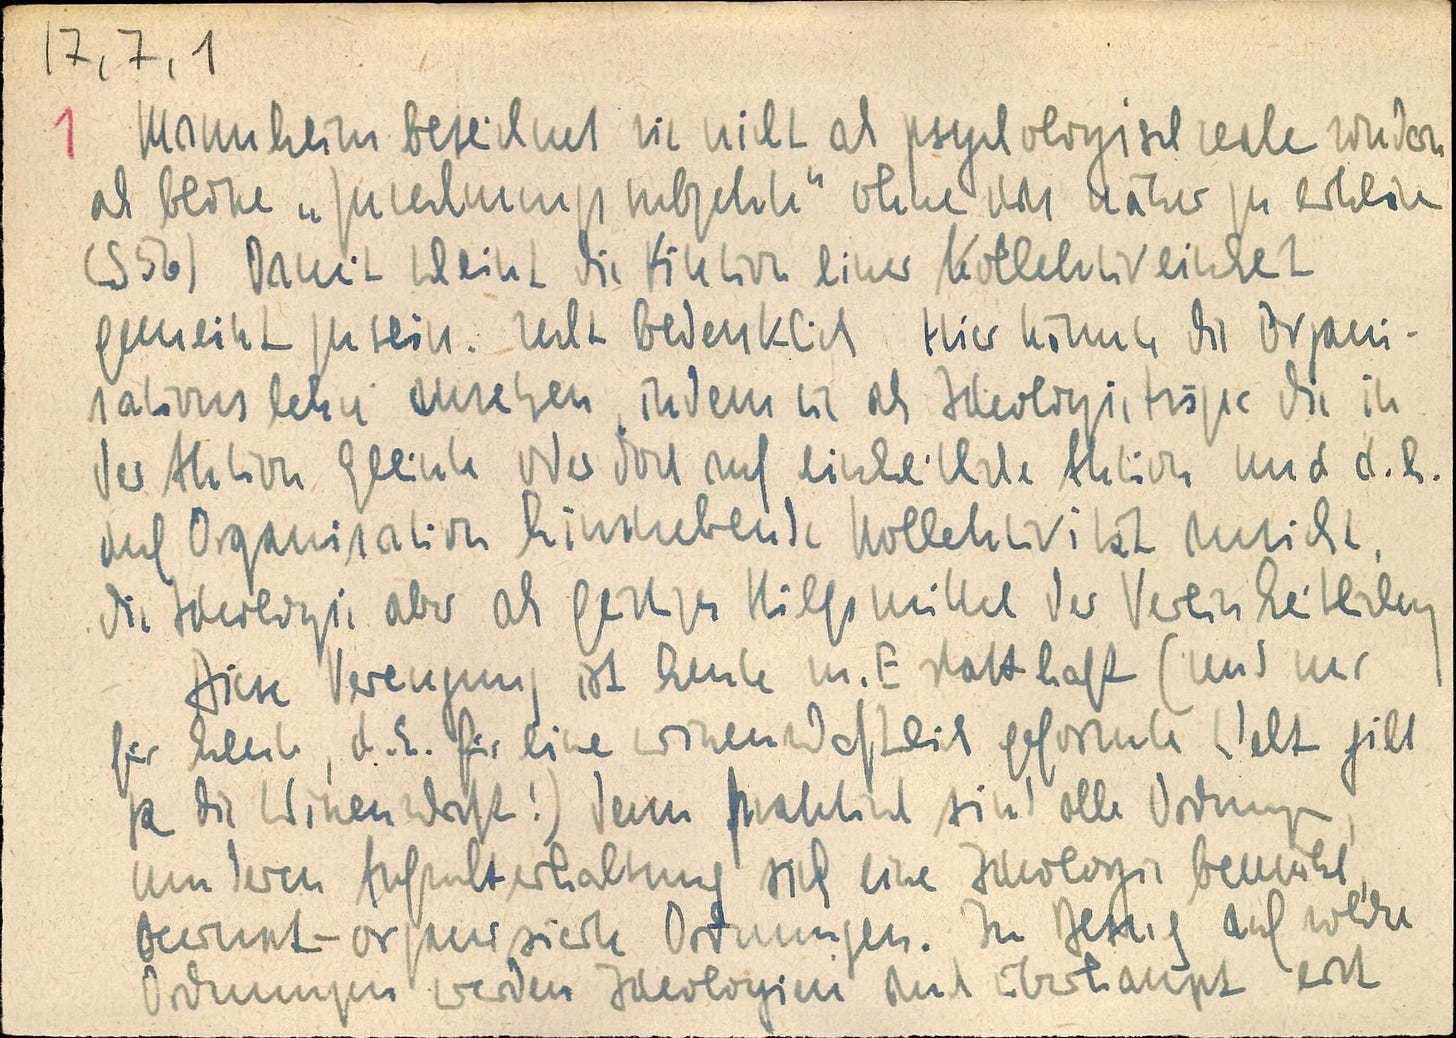 17,7,1
1 Mannheim bezeichnet sie nicht als psychologisch reale sondern
als bloße „Zurechnungssubjekte“ ohne das näher zu erklären
(S 56) Damit scheint die Fiktion einer Kollektiveinheit
gemeint zu sein. recht bedenklich Hier könnte die Organi-
sationslehre ansetzen, indem sie als Ideologieträger die in
der Aktion geeinte oder doch auf einheitliche Aktion und d.h.
auf Organisation hinstrebende Kollektivität ansieht,
die Ideologie aber als geistiges Hilfsmittel der Vereinheitlichung
Diese Verengung ist heute m.E statthaft (und nur
für heute, d.h. für eine wissenschaftlich geformte Welt gilt
ja die Wissenschaft!) denn praktisch sind alle Ordnungen,
um deren Aufrechterhaltung sich eine Ideologie bemüht,
bewusst-organisierte Ordnungen. In Bezug auf solche
Ordnungen werden Ideologien auch überhaupt erst